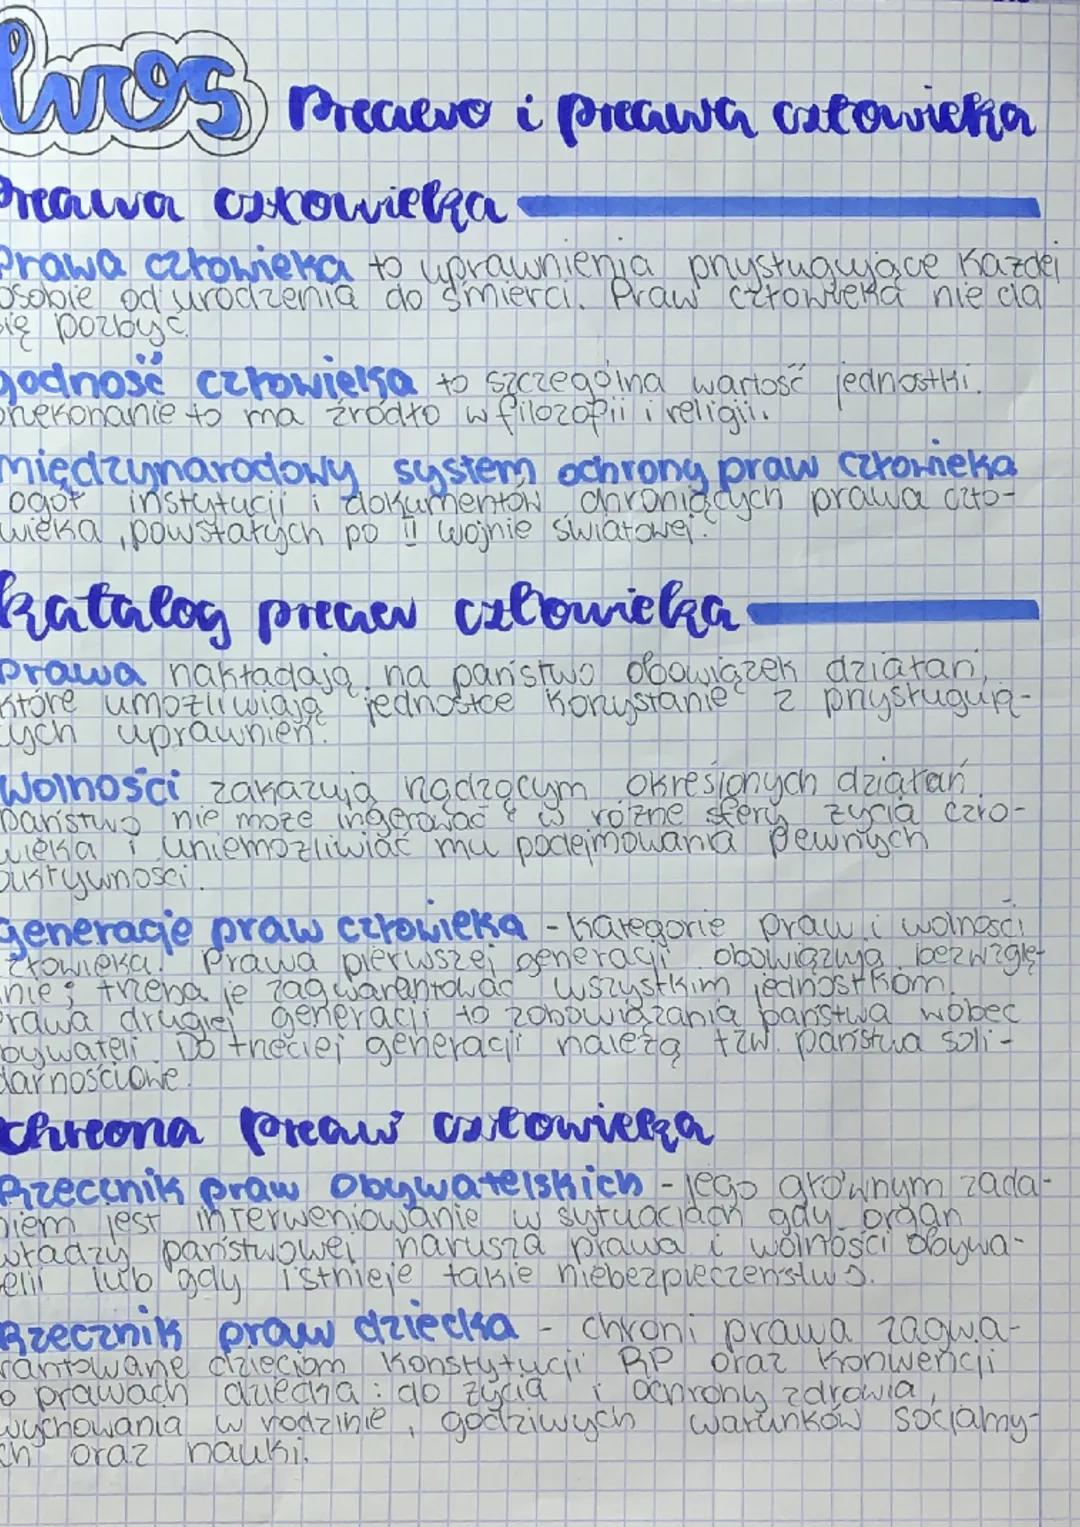 wos Prawo i prawa człowieka
Prawa człowieka
Prawa człowieka to uprawnienia przysługujące każdej
osobie od urodzenia do śmierci. Praw człowieka nie da
się pozbyć.
godność człowieka to szczególna wartość jednostki.
przekonanie to ma źródło w filozofii i religii.
międzynarodowy system ochrony praw człowieka
ogół instytucji i dokumentów chroniących prawa czło-
wieka, powstałych po II wojnie światowej.
katalog praw człowieka
prawa nakładają na państwo obowiązek działań,
które umożliwiają jednostce korzystanie z przysługują-
cych uprawnień.
Wolności zakazują rządzącym określonych działań.
państwo nie może ingerować w różne sfery życia czło-
wieka i uniemożliwiać mu podejmowania pewnych
aktywności.
generacje praw człowieka - kategorie praw i wolności
człowieka. Prawa pierwszej generacji obowiązują bezwzglę-
nie; trzeba je zagwarantować wszystkim jednostkom.
Prawa drugiej generacji to zobowiązania państwa wobec
obywateli. Do trzeciej generacji należą tzw. państwa soli-
darnościowe.
Ochrona praw człowieka
Rzecznik praw Obywatelskich - jego głównym zada-
niem jest interweniowanie w sytuacjach gdy organ
władzy państwowej narusza prawa i wolności obywa-
teli lub gdy istnieje takie niebezpieczeństwo.
Rzecznik praw dziecka - chroni prawa zagwa-
rantowane dzieciom Konstytucji RP oraz Konwencji
o prawach dziecka: do życia i ochrony zdrowia,
wychowania w rodzinie, godziwych warunków socjalny-
ch oraz nauki.